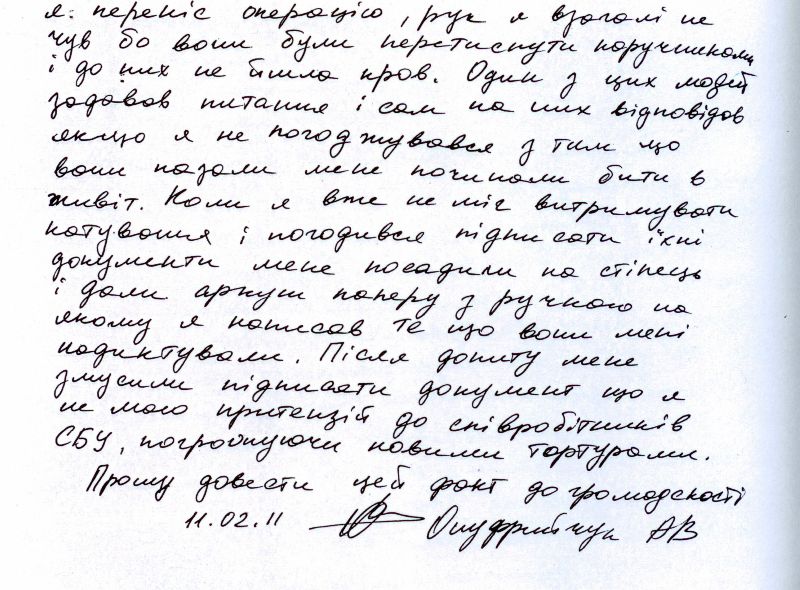 я переніс операцію, рук я взагалі не
чув бо вони були перетиснути наручниками
і до них не йшла кров. Один з цих людей
задавав питання і сам на них відповідав
якщо я не погоджувався з тим що
вони казали мене починали бити в
живіт. Коли я вже не міг витримувати
катування і погодився підписати їхні
документи мене посадили на стілець
і дали аркуш паперу з ручкою на
якому я написав те що вони мені
надиктували. Після допиту мене
змусили підписати документ що я
не маю притензій до співробітників
СБУ, погрожуючи новими тортурами.
Прошу довести цей факт до громадскості
11.02.11 Онуфрийчук АВ